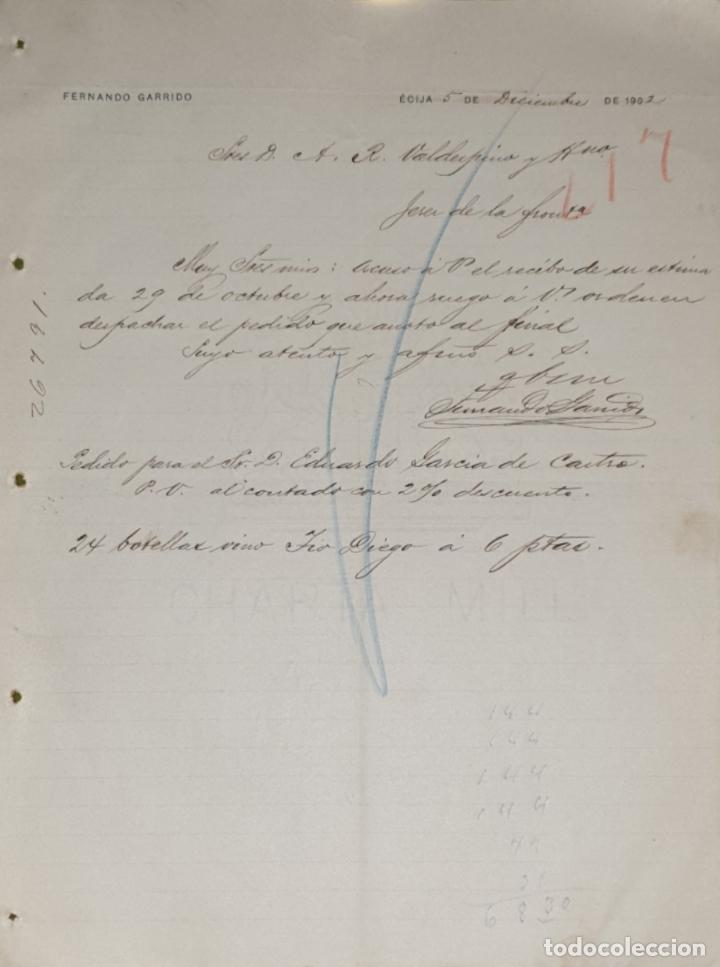 FERNANDO GARRIDO
ÉCIJA 5 DE Diciembre DE 1902
117
Sres D. A. R. Valdespino y Hno
Jerez de la Front.ra
Muy Sres mios: acuso á V. el recibo de su estima
da 29 de octubre y ahora ruego á V.s ordenen
despachar el pedido que anoto al final
Suyo atento y afmo S. S.
q b s m
Fernando Garrido
Pedido para el Sr. D. Eduardo Garcia de Castro.
P. V. al contado con 2% descuento.
24 botellas vino Tio Diego á 6 ptas.
26791
144
144
144
144
todocoleccion.net